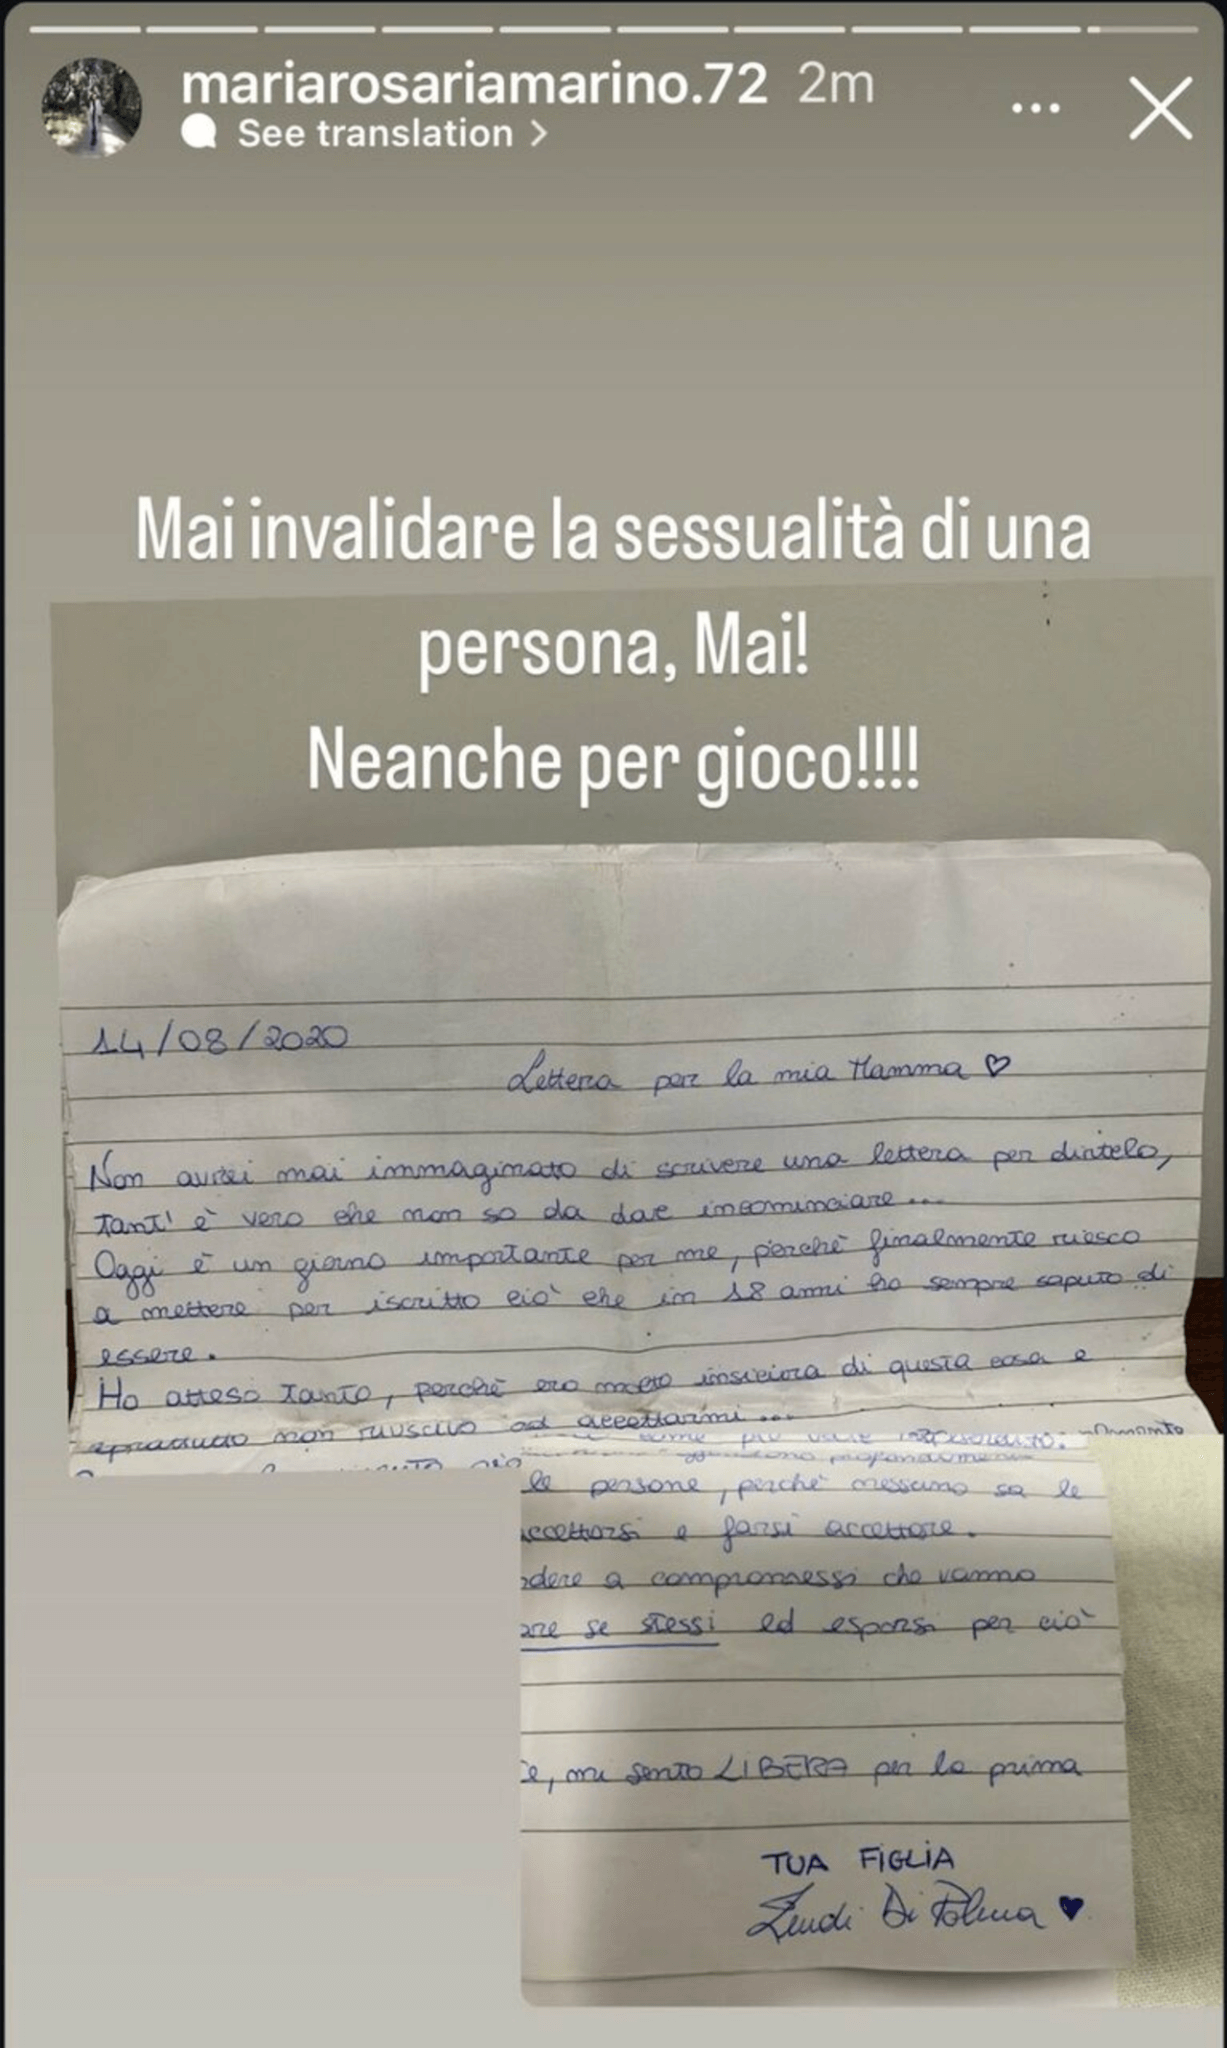 mariarosariamarino.72 2m
See translation >
Mai invalidare la sessualità di una
persona, Mai!
Neanche per gioco!!!!
14/08/2020
Lettera per la mia Mamma ♡
Non avrei mai immaginato di scrivere una lettera per dirtelo,
tant' è vero che non so da dove incominciare...
Oggi è un giorno importante per me, perchè finalmente riesco
a mettere per iscritto ciò che in 18 anni ho sempre saputo di
essere.
Ho atteso tanto, perchè ero molto insicura di questa cosa e
sopratutto non riuscivo ad accettarmi...
profondamente
le persone, perchè nessuno sa le
accettarsi e farsi accettare.
dere a compromessi che vanno
are se stessi ed esporsi per ciò
e, mi sento LIBERA per la prima
TUA FIGLIA
Zendi Di Palma ♥